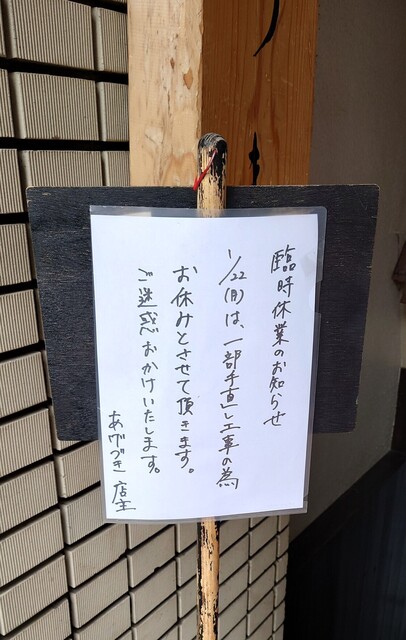 臨時休業のお知らせ
1/22(月)は、一部手直し工事の為
お休みとさせて頂きます。
ご迷惑おかけいたします。
あげづき 店主